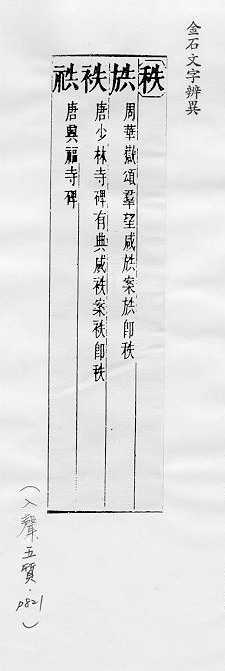 金石文字辨異
秩
周華嶽頌羣望咸案即秩
袟
唐少林寺碑有典咸袟案袟即秩
唐興福寺碑
(入聲五質.p821)